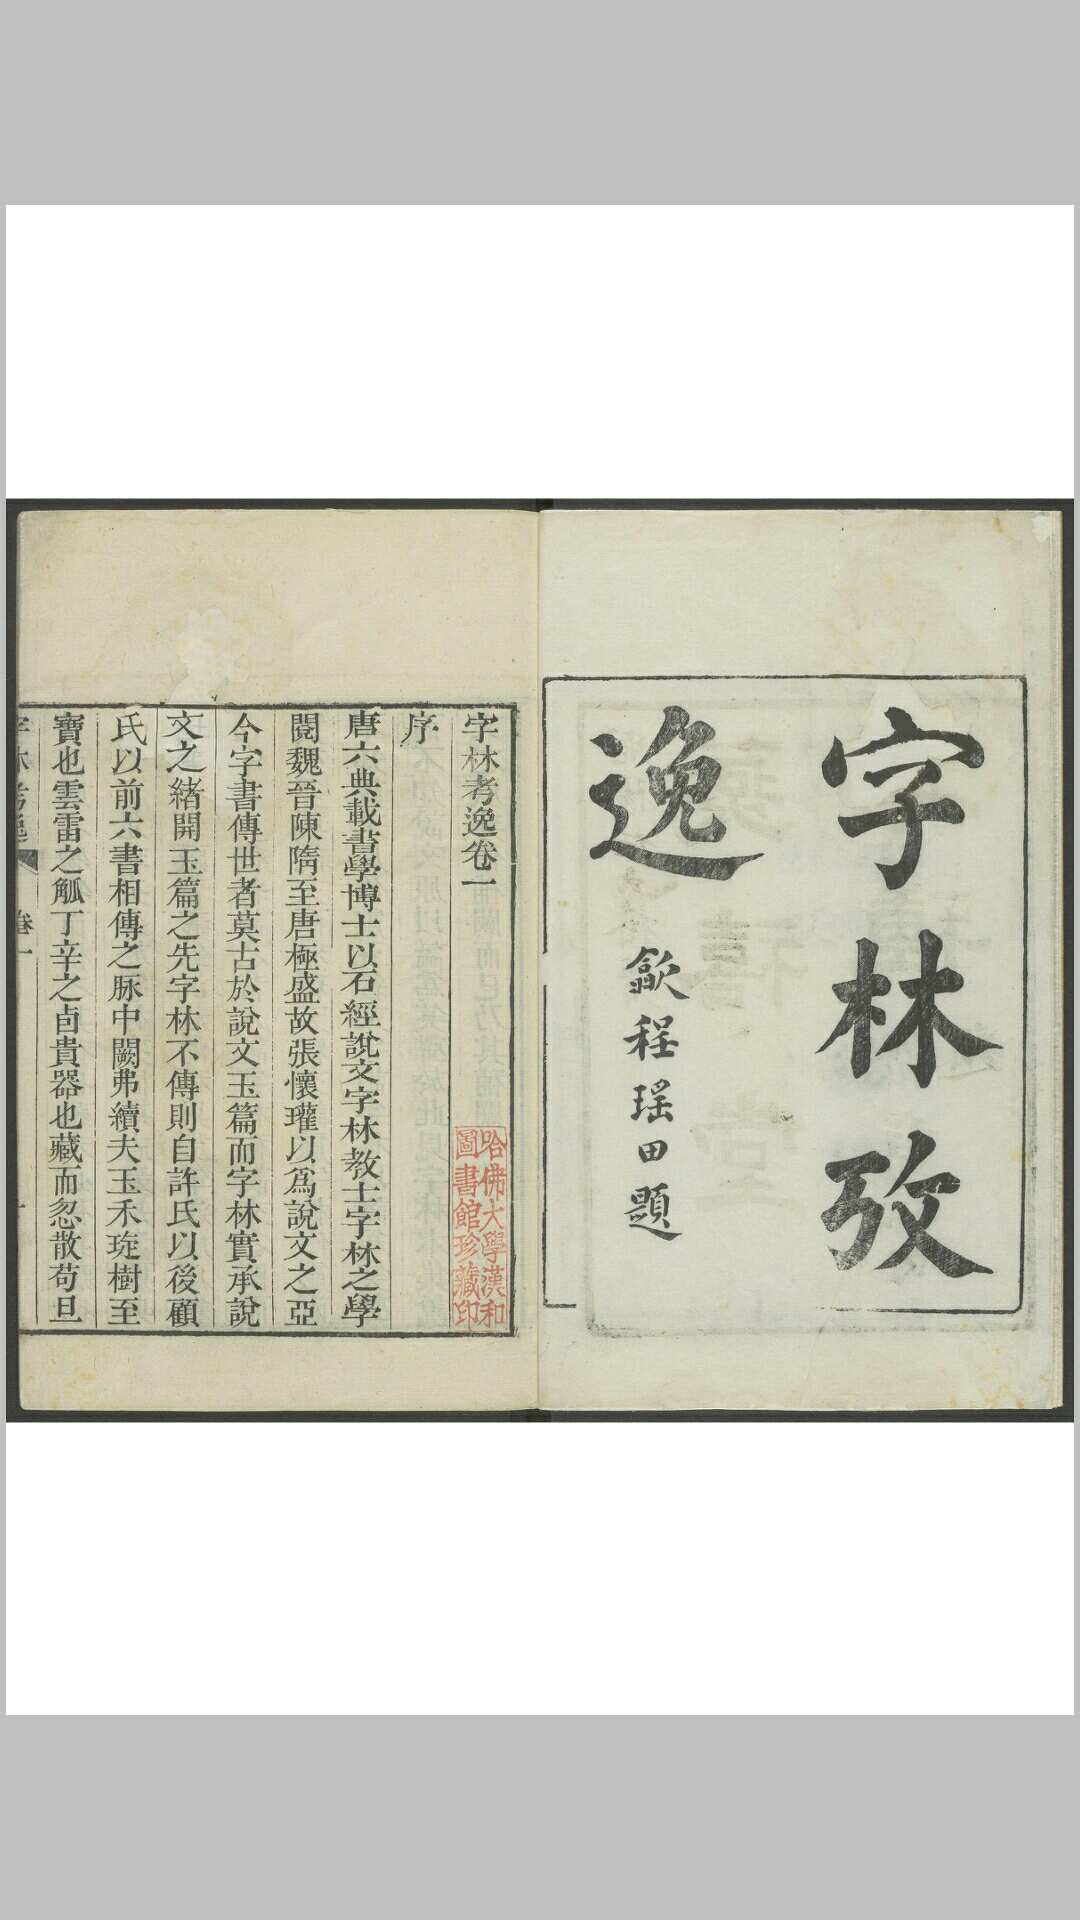 字林攷
逸
歙程瑶田題
字林考逸卷一
哈佛大學漢和
圖書館珍藏印
序
唐六典載書學博士以石經說文字林教士字林之學
閱魏晉陳隋至唐極盛故張懷瓘以爲說文之亞
今字書傳世者莫古於說文玉篇而字林實承說
文之緒開玉篇之先字林不傳則自許氏以後顧
氏以前六書相傳之脉中闕弗續夫玉禾琁樹至
寶也雲雷之觚丁辛之卣貴器也藏而忽散苟旦
字林考逸 卷一 一